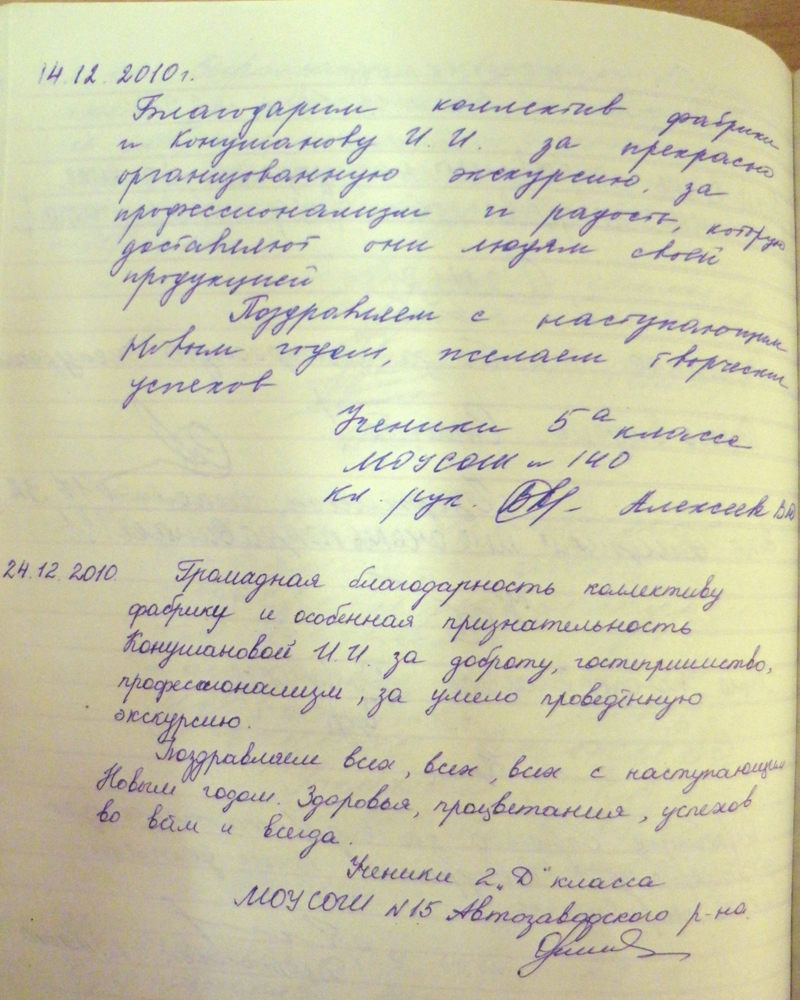 14.12.2010г.
Благодарим коллектив фабрики
и Конушанову И.И. за прекрасно
организованную экскурсию, за
профессионализм и радость, которую
доставляют они людям своей
продукцией
Поздравляем с наступающим
Новым годом, желаем творческих
успехов
Ученики 5а класса
МОУСОШ № 140
Кл. рук. Алексеев
24.12.2010. Громадная благодарность коллективу
фабрику и особенная признательность
Конушановой И.И. за доброту, гостеприимство,
профессионализм, за умело проведённую
экскурсию.
Поздравляем всех, всех, всех с наступающим
Новым годом. Здоровья, процветания, успехов
во всём и всегда.
Ученики 2„Д" класса
МОУСОШ №15 Автозаводского р-на